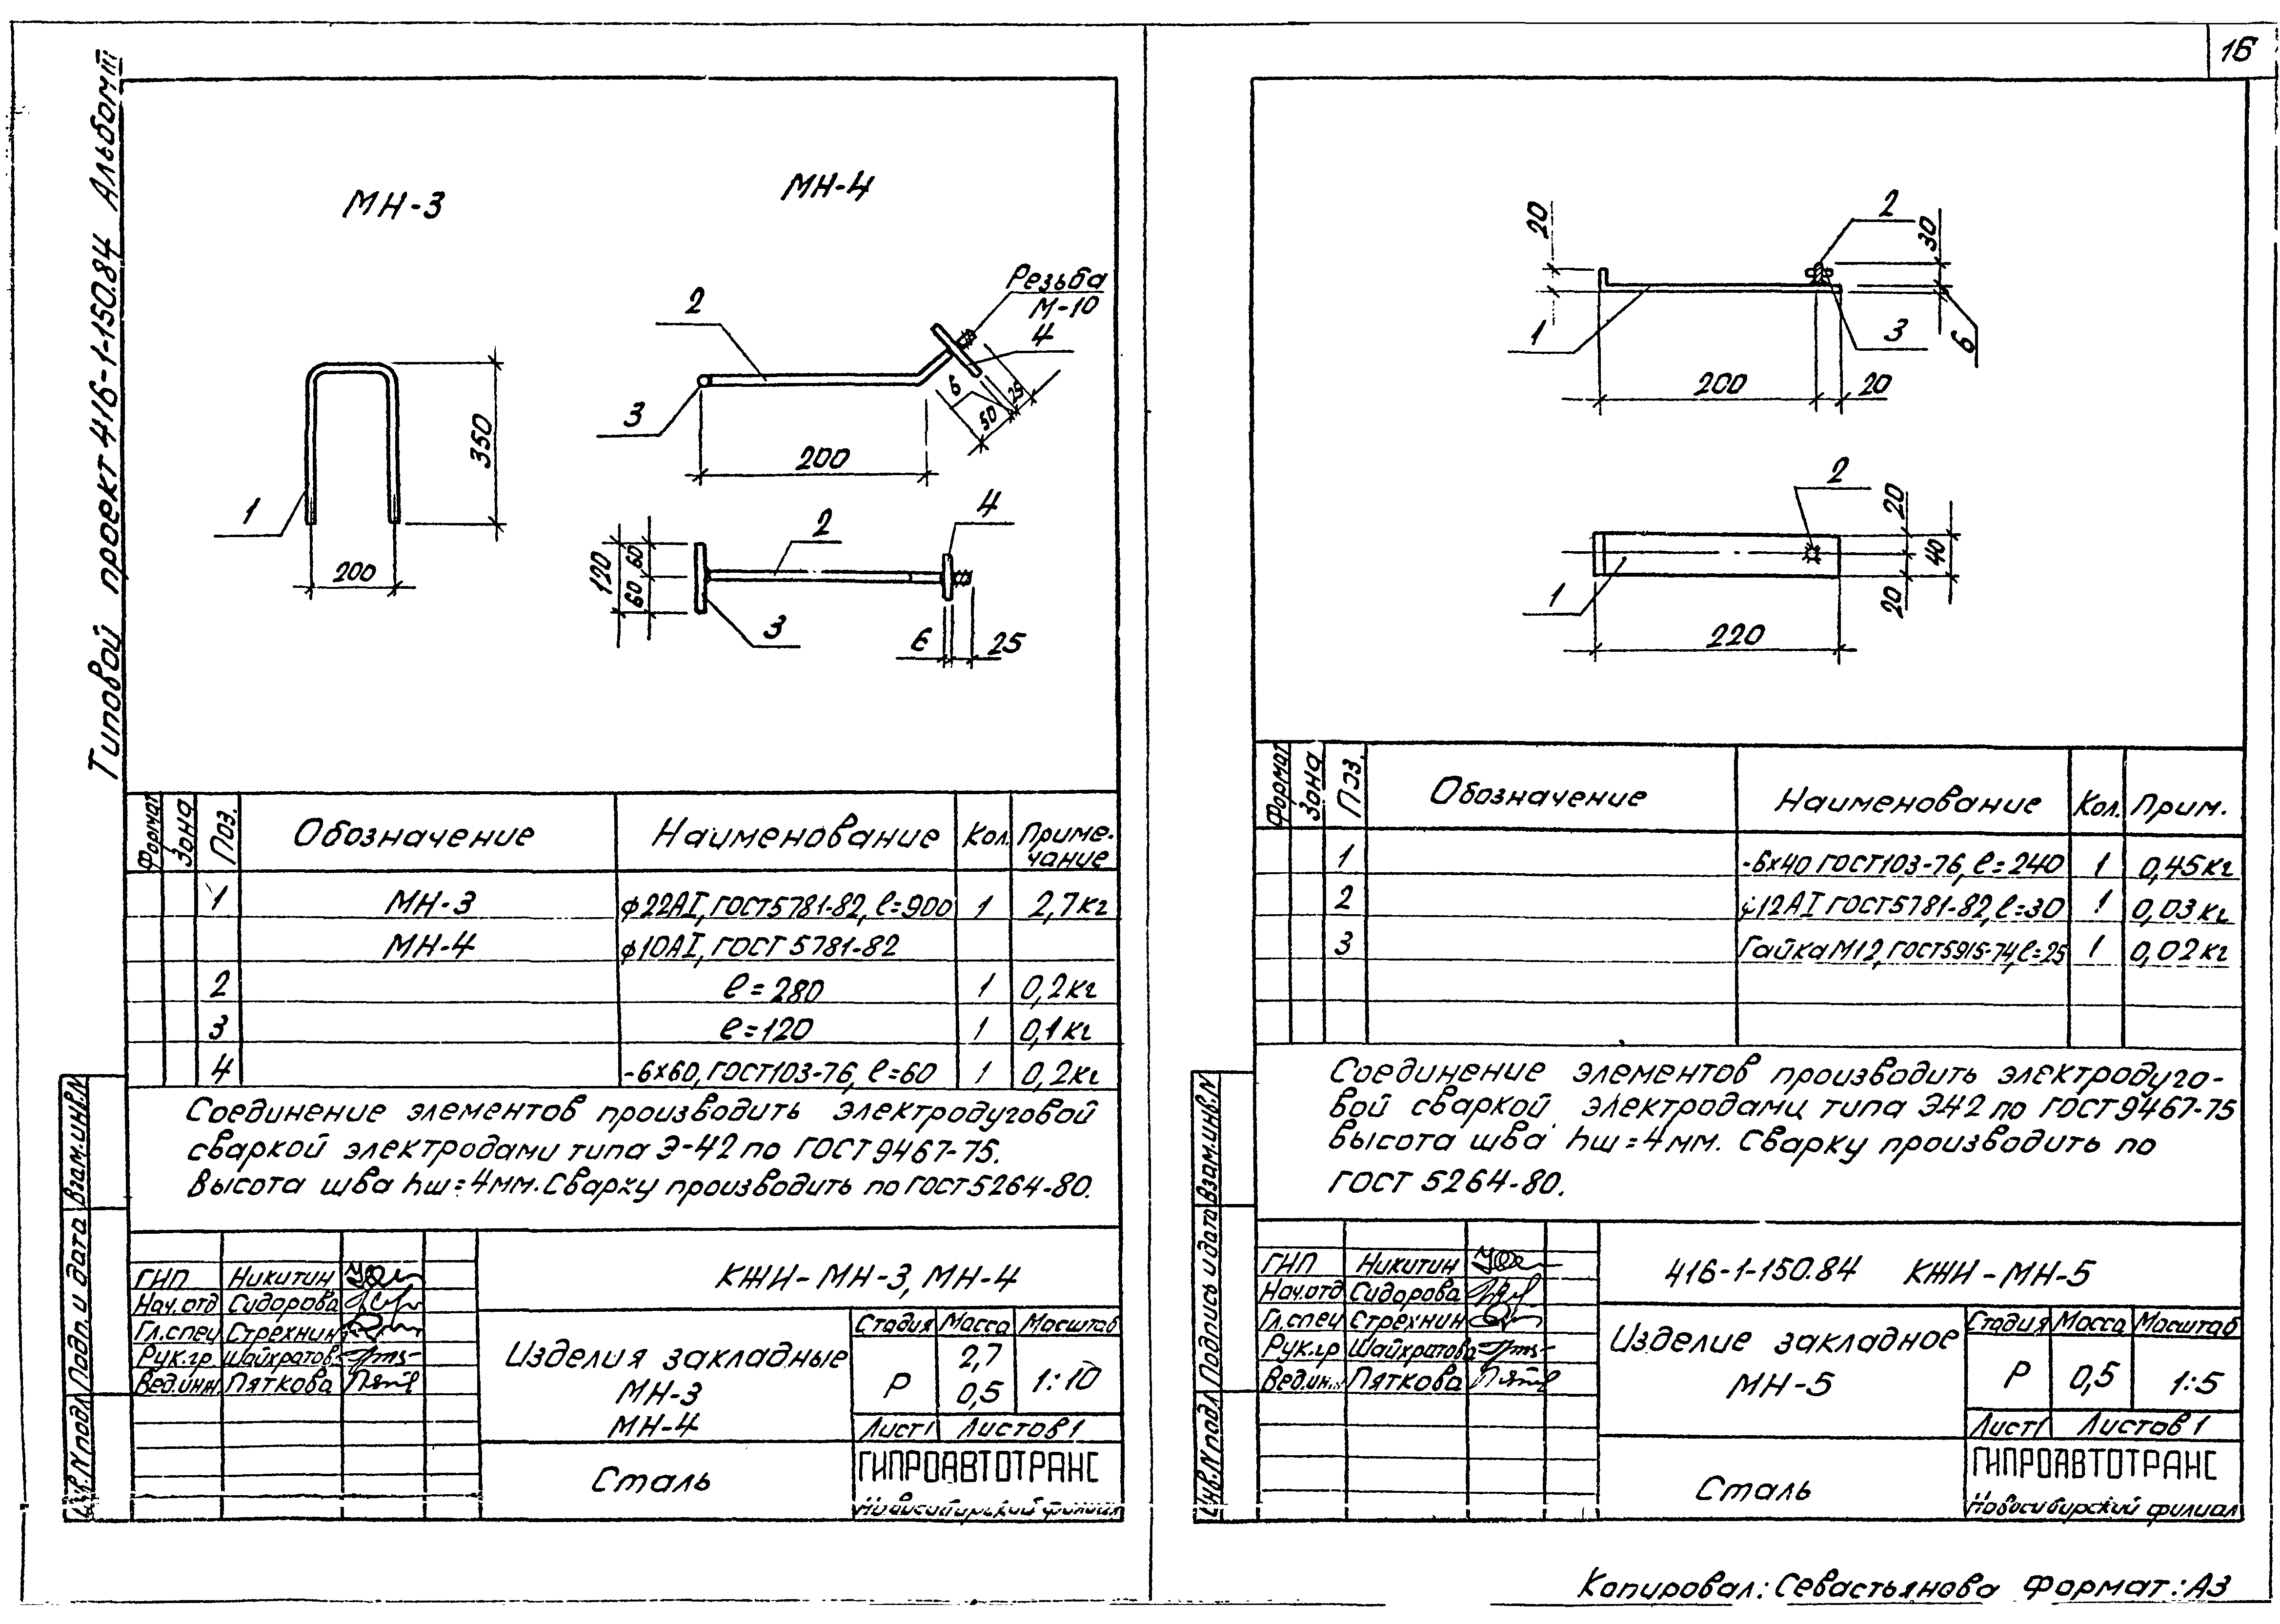 16
Типовой проект 416-1-150.84 Альбом III
МН-3
1
350
200
МН-4
Резьба
М-10
2
4
3
6
25
50
200
4
2
120
60
60
3
6
25
Формат
Зона
Поз.
Обозначение
Наименование
Кол.
Приме-
чание
1 МН-3 ϕ22АI, ГОСТ5781-82, ℓ=900 1 2,7кг
МН-4 ϕ10АI, ГОСТ 5781-82
2 ℓ=280 1 0,2кг
3 ℓ=120 1 0,1кг
4 -6х60, ГОСТ103-76, ℓ=60 1 0,2кг
Соединение элементов производить электродуговой
сваркой электродами типа Э-42 по ГОСТ 9467-75.
Высота шва hш=4мм. Сварку производить по ГОСТ5264-80.
Взам.инв.N
Подп. и дата
Инв.N подл
ГИП Никитин
Нач.отд Сидорова
Гл.спец Стрехнин
Рук.гр Шайхратов
Вед.инж Пяткова
КЖИ-МН-3, МН-4
Изделия закладные
МН-3
МН-4
Стадия Масса Масштаб
Р
2,7
0,5
1:10
Лист 1 Листов 1
Сталь
ГИПРОАВТОТРАНС
Новосибирский филиал
20
2
30
1
3
6
200
20
2
20
40
20
1
220
Формат
Зона
Поз.
Обозначение
Наименование
Кол.
Прим.
1 -6х40 ГОСТ103-76, ℓ=240 1 0,45кг
2 ϕ12АI ГОСТ5781-82, ℓ=30 1 0,03кг
3 Гайка М12, ГОСТ5915-74, ℓ=25 1 0,02кг
Соединение элементов производить электродуго-
вой сваркой электродами типа Э42 по ГОСТ 9467-75
высота шва hш=4мм. Сварку производить по
ГОСТ 5264-80.
Взам.инв.N
Подпись и дата
Инв.N подл
ГИП Никитин
Нач.отд Сидорова
Гл.спец Стрехнин
Рук.гр Шайхратова
Вед.ин. Пяткова
416-1-150.84 КЖИ-МН-5
Изделие закладное
МН-5
Стадия Масса Масштаб
Р 0,5 1:5
Лист 1 Листов 1
Сталь
ГИПРОАВТОТРАНС
Новосибирский филиал
Копировал: Севастьянова Формат: А3